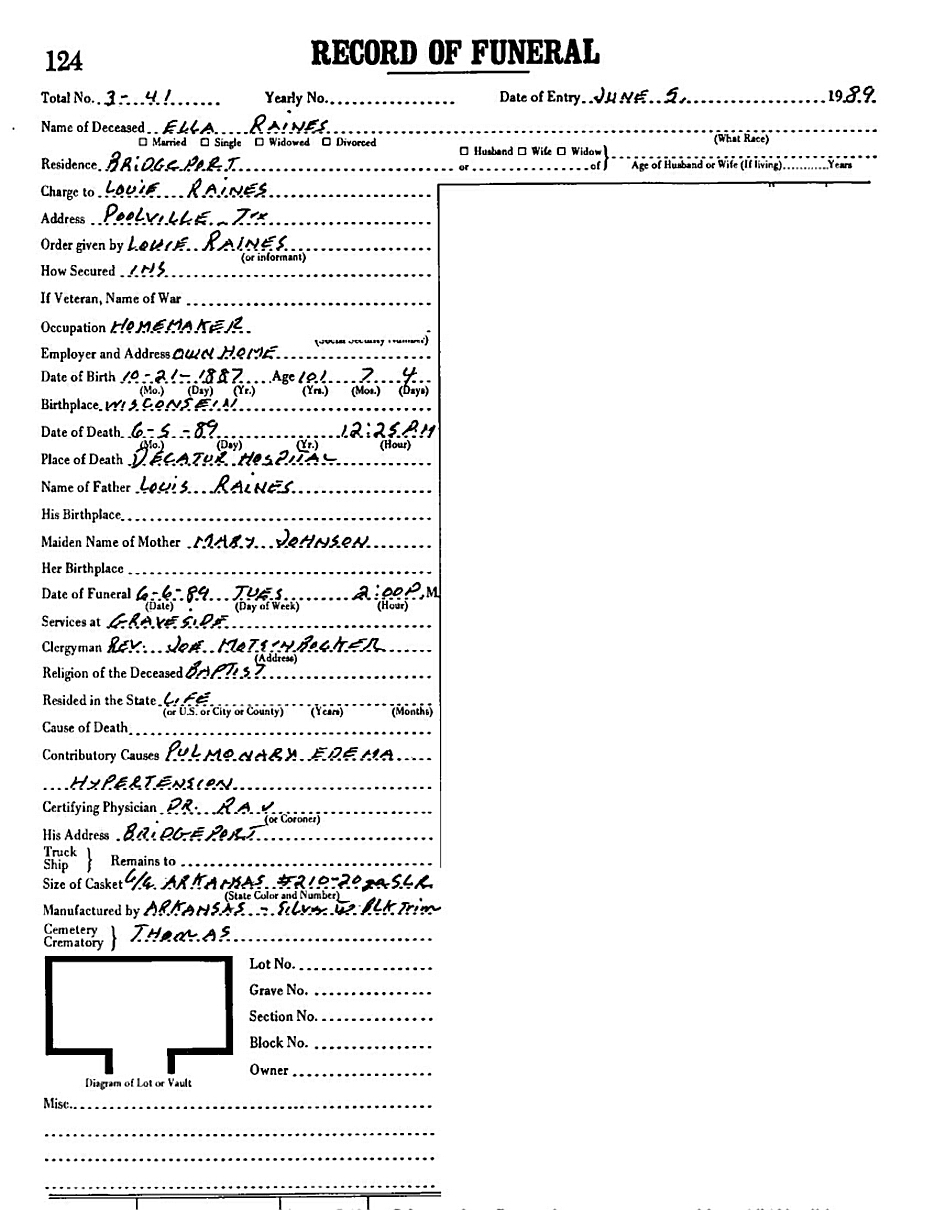 124
RECORD OF FUNERAL
Total No. 3-41 Yearly No. Date of Entry JUNE 5, 1989
Name of Deceased ELLA RAINES
☐ Married ☐ Single ☐ Widowed ☐ Divorced (What Race)
☐ Husband ☐ Wife ☐ Widow
Residence BRIDGEPORT or of } Age of Husband or Wife (If living) Years
Charge to LOUIE RAINES
Address POOLVILLE - TX
Order given by LOUIE RAINES
(or informant)
How Secured INS
If Veteran, Name of War
Occupation HOMEMAKER
(Social Security Number)
Employer and Address OWN HOME
Date of Birth 10-21-1887 Age 101 7 4
(Mo.) (Day) (Yr.) (Yrs.) (Mos.) (Days)
Birthplace WISCONSEIN
Date of Death 6-5-89 12:25 P.M
(Mo.) (Day) (Yr.) (Hour)
Place of Death DECATUR HOSPITAL
Name of Father LOUIS RAINES
His Birthplace
Maiden Name of Mother MARY JOHNSON
Her Birthplace
Date of Funeral 6-6-89 TUES 2:00 P.M.
(Date) (Day of Week) (Hour)
Services at GRAVESIDE
Clergyman REV. JOE
(Address)
Religion of the Deceased BAPTIST
Resided in the State LIFE
(or U.S. or City or County) (Years) (Months)
Cause of Death
Contributory Causes PULMONARY EDEMA
HYPERTENSION
Certifying Physician DR. RAY
(or Coroner)
His Address BRIDGEPORT
Truck
Ship } Remains to
Size of Casket 6/6 ARKANSAS #210-20 ga SLR
(State Color and Number)
Manufactured by ARKANSAS - Silver W BLK Trim
Cemetery
Crematory } THOMAS
Lot No.
Grave No.
Section No.
Block No.
Owner
Diagram of Lot or Vault
Misc.